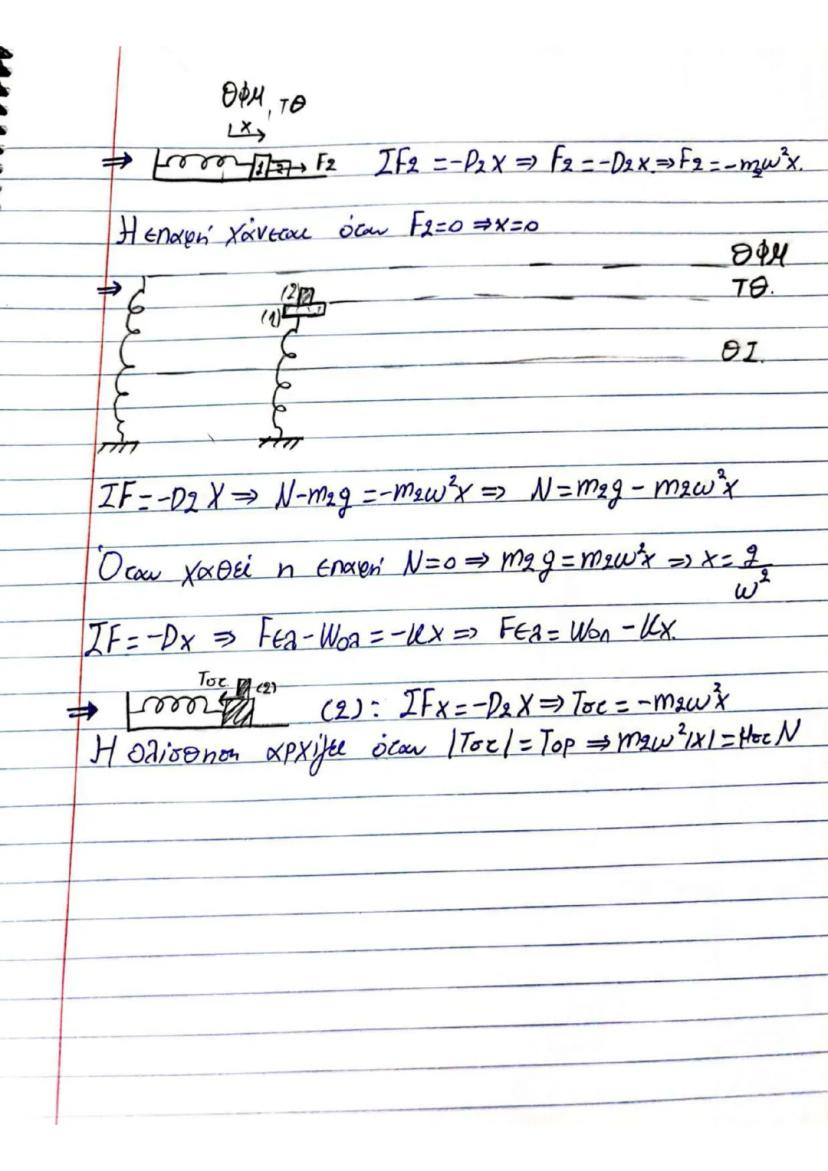 ΘΦΜ, ΤΘ
x
⇒ 1 2 F2 ΣF2 = -D2x ⇒ F2 = -D2x ⇒ F2 = -m2ω²x.
Η επαφή χάνεται όταν F2=0 ⇒ x=0
ΘΦΜ
⇒ (2) ΤΘ.
(1)
ΘΙ.
ΣF = -D2 X ⇒ N-m2g = -m2ω²x ⇒ N = m2g - m2ω²x
Όταν χαθεί η επαφή N=0 ⇒ m2g = m2ω²x ⇒ x = g/ω²
ΣF = -Dx ⇒ Fελ - Wολ = -Kx ⇒ Fελ = Wολ - Kx.
Τστ (2)
⇒ (2): ΣFx = -D2X ⇒ Τστ = -m2ω²x
Η ολίσθηση αρχίζει όταν |Τστ| = Τορ ⇒ m2ω²|x| = μστ N